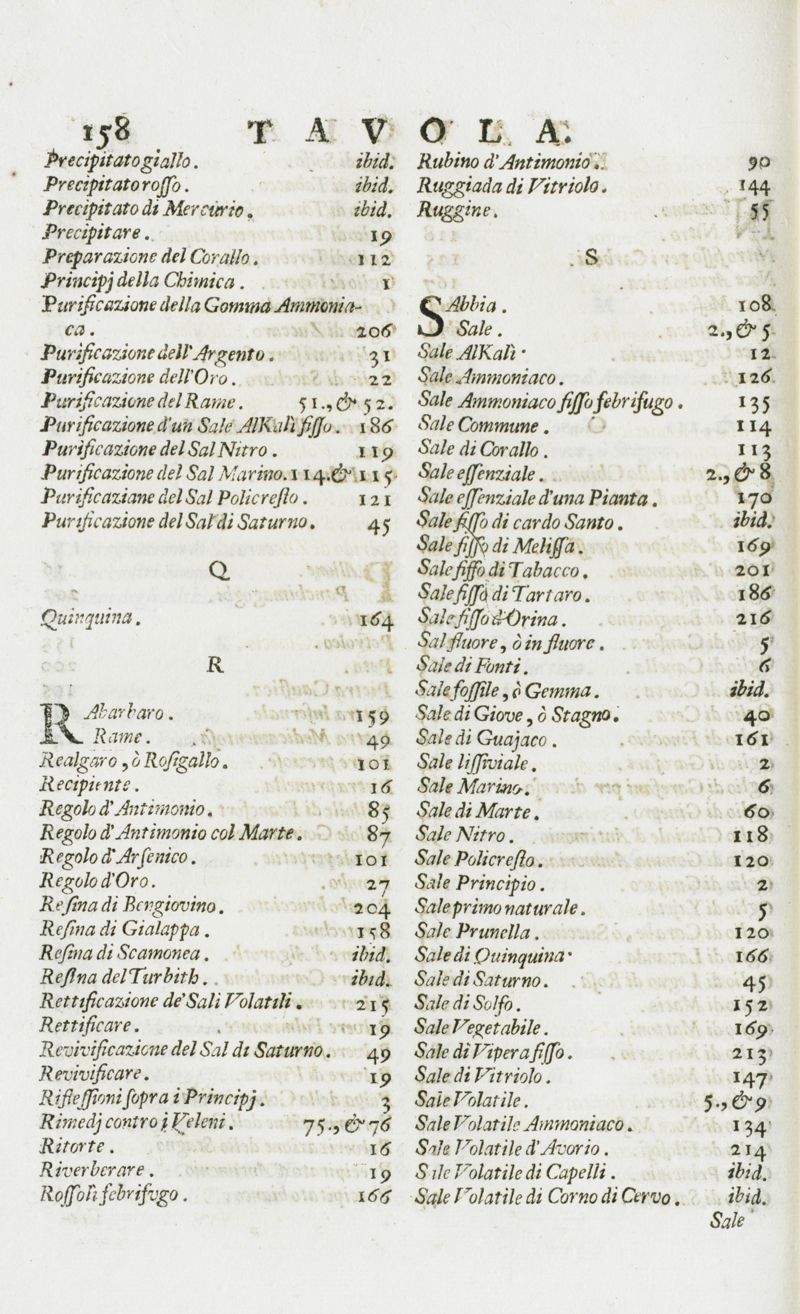 158 T A V O L A.
Precipitato giallo. ibid.
Precipitato rosso. ibid.
Precipitato di Mercurio. ibid.
Precipitare. 19
Preparazione del Corallo. 112
Principj della Chimica. 1
Purificazione della Gomma Ammonia-
ca. 206
Purificazione dell'Argento. 31
Purificazione dell'Oro. 22
Purificazione del Rame. 51., & 52.
Purificazione d'un Sale AlKalì fisso. 186
Purificazione del Sal Nitro. 119
Purificazione del Sal Marino. 114. & 115
Purificaziane del Sal Policresto. 121
Purificazione del Sal di Saturno. 45
Q
Quinquina. 164
R
RAbarbaro. 159
Rame. 49
Realgaro, ò Rosigallo. 101
Recipiente. 16
Regolo d'Antimonio. 85
Regolo d'Antimonio col Marte. 87
Regolo d'Arsenico. 101
Regolo d'Oro. 27
Resina di Bengiovino. 204
Resina di Gialappa. 158
Resina di Scamonea. ibid.
Resina del Turbith. ibid.
Rettificazione de' Sali Volatili. 215
Rettificare. 19
Revivificazione del Sal di Saturno. 49
Revivificare. 19
Riflessioni sopra i Principj. 3
Rimedj contro i Veleni. 75., & 76
Ritorte. 16
Riverberare. 19
Rossolì febrifvgo. 166
Rubino d'Antimonio. 90
Ruggiada di Vitriolo. 144
Ruggine. 55
S
SAbbia. 108
Sale. 2., & 5
Sale AlKalì. 12
Sale Ammoniaco. 126
Sale Ammoniaco fisso febrifugo. 135
Sale Commune. 114
Sale di Corallo. 113
Sale essenziale. 2., & 8
Sale essenziale d'una Pianta. 170
Sale fisso di cardo Santo. ibid.
Sale fisso di Melissa. 169
Sale fisso di Tabacco. 201
Sale fisso di Tartaro. 186
Sale fisso d'Orina. 216
Sal fluore, ò in fluore. 5
Sale di Fonti. 6
Sale fossile, ò Gemma. ibid.
Sale di Giove, ò Stagno. 40
Sale di Guajaco. 161
Sale lissiviale. 2
Sale Marino. 6
Sale di Marte. 60
Sale Nitro. 118
Sale Policresto. 120
Sale Principio. 2
Sale primo naturale. 5
Sale Prunella. 120
Sale di Quinquina. 166
Sale di Saturno. 45
Sale di Solfo. 152
Sale Vegetabile. 169
Sale di Vipera fisso. 213
Sale di Vitriolo. 147
Sale Volatile. 5., & 9
Sale Volatile Ammoniaco. 134
Sale Volatile d'Avorio. 214
Sale Volatile di Capelli. ibid.
Sale Volatile di Corno di Cervo. ibid.
Sale